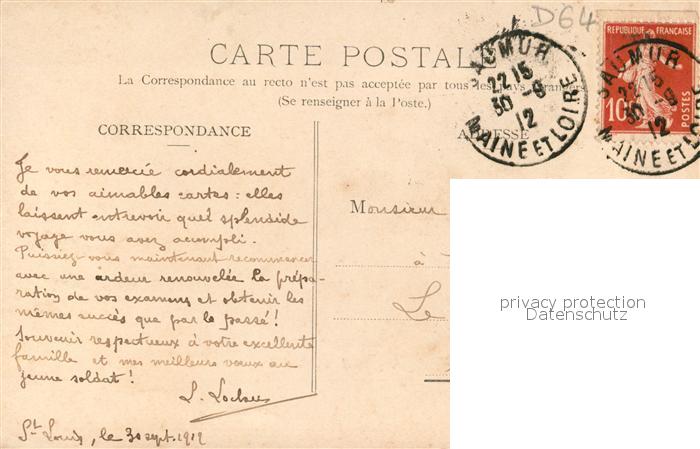 D64
CARTE POSTAL
La Correspondance au recto n'est pas acceptée par tous les pays étrangers
(Se renseigner à la Poste.)
CORRESPONDANCE
ADRESSE
Je vous remercie cordialement
de vos aimables cartes : elles
laissent entrevoir quel splendide
voyage vous avez acompli.
Puissiez-vous maintenant recommencer
avec une ardeur renouvelée la prépa-
ration de vos examens et obtenir les
mêmes succès que par le passé !
Souvenir respectueux à votre excellente
famille et mes meilleurs vœux au
jeune soldat !
L.
St Louis, le 30 sept. 1912
Monsieur
à
Le
SAUMUR
22 15
30 -9
12
MAINE ET LOIRE
REPUBLIQUE FRANÇAISE
10
POSTES
SAUMUR
22 15
30 -9
12
MAINE ET LOIRE
privacy protection
Datenschutz